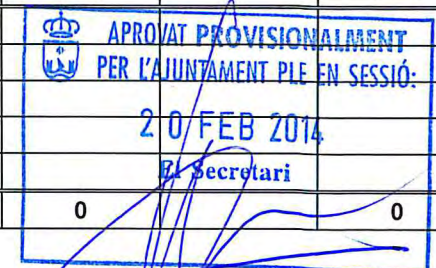 APROVAT PROVISIONALMENT
PER L'AJUNTAMENT PLE EN SESSIÓ:
20 FEB 2014
El Secretari
0 0